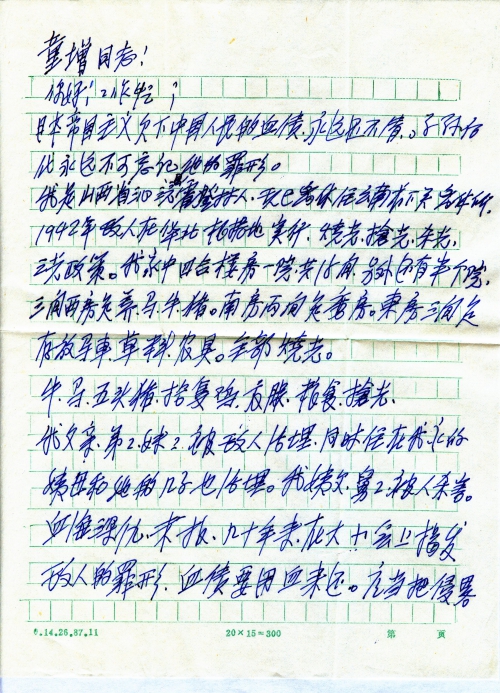 童增同志！
你好！工作忙；
日本帝国主义欠下中国人民的血债，永远还不清。子孙后
代永远不可忘记他的罪形。
我是山西省沁源 村人，现已离休住云南省个旧
1942年敌人在华北根据地实行，烧光、抢光、杀光，
三光政策。我家中四合楼房一院共15间，另外还有半个院，
三间西房危养马、牛、猪。南房两间危 房。东房三间危
存放马車、草料、农具。全部烧光。
牛、马、五头猪、拾 鸡、衣服、粮食、抢光、
我父亲、弟2、妹2、被敌人活埋，同时住在我家的
姨母和她的儿子也活埋。我姨父、舅2、被人杀害。
血海深仇、未报、几十年来在大小会上揭发
敌人的罪形，血债要用血来还。应当把侵畧
0.14.26.87.11 20×15=300 第 页